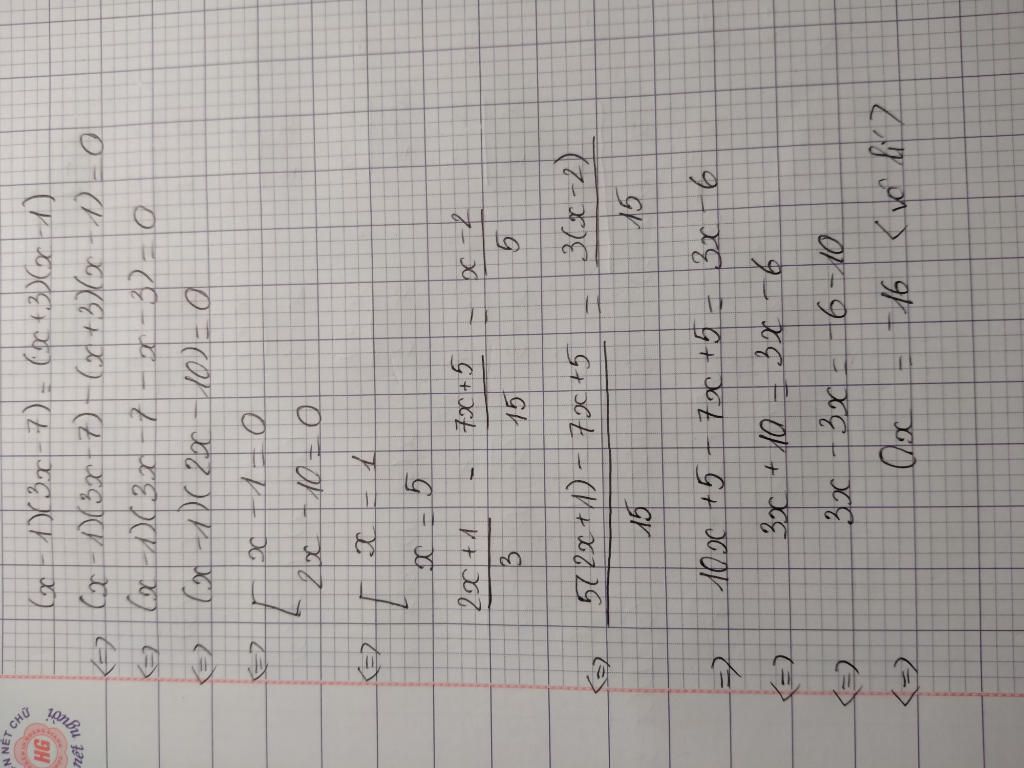 (x-1)(3x-7) = (x+3)(x-1)
<=> (x-1)(3x-7) - (x+3)(x-1) = 0
<=> (x-1)(3x-7-x-3) = 0
<=> (x-1)(2x-10) = 0
<=> [ x-1 = 0
2x-10 = 0
<=> [ x = 1
x = 5
2x+1 / 3 - 7x+5 / 15 = x-2 / 5
<=> 5(2x+1) - 7x+5 / 15 = 3(x-2) / 15
=> 10x+5 - 7x+5 = 3x-6
<=> 3x+10 = 3x-6
<=> 3x - 3x = -6-10
<=> 0x = -16 <vô lí>
NÉT CHỮ
HG